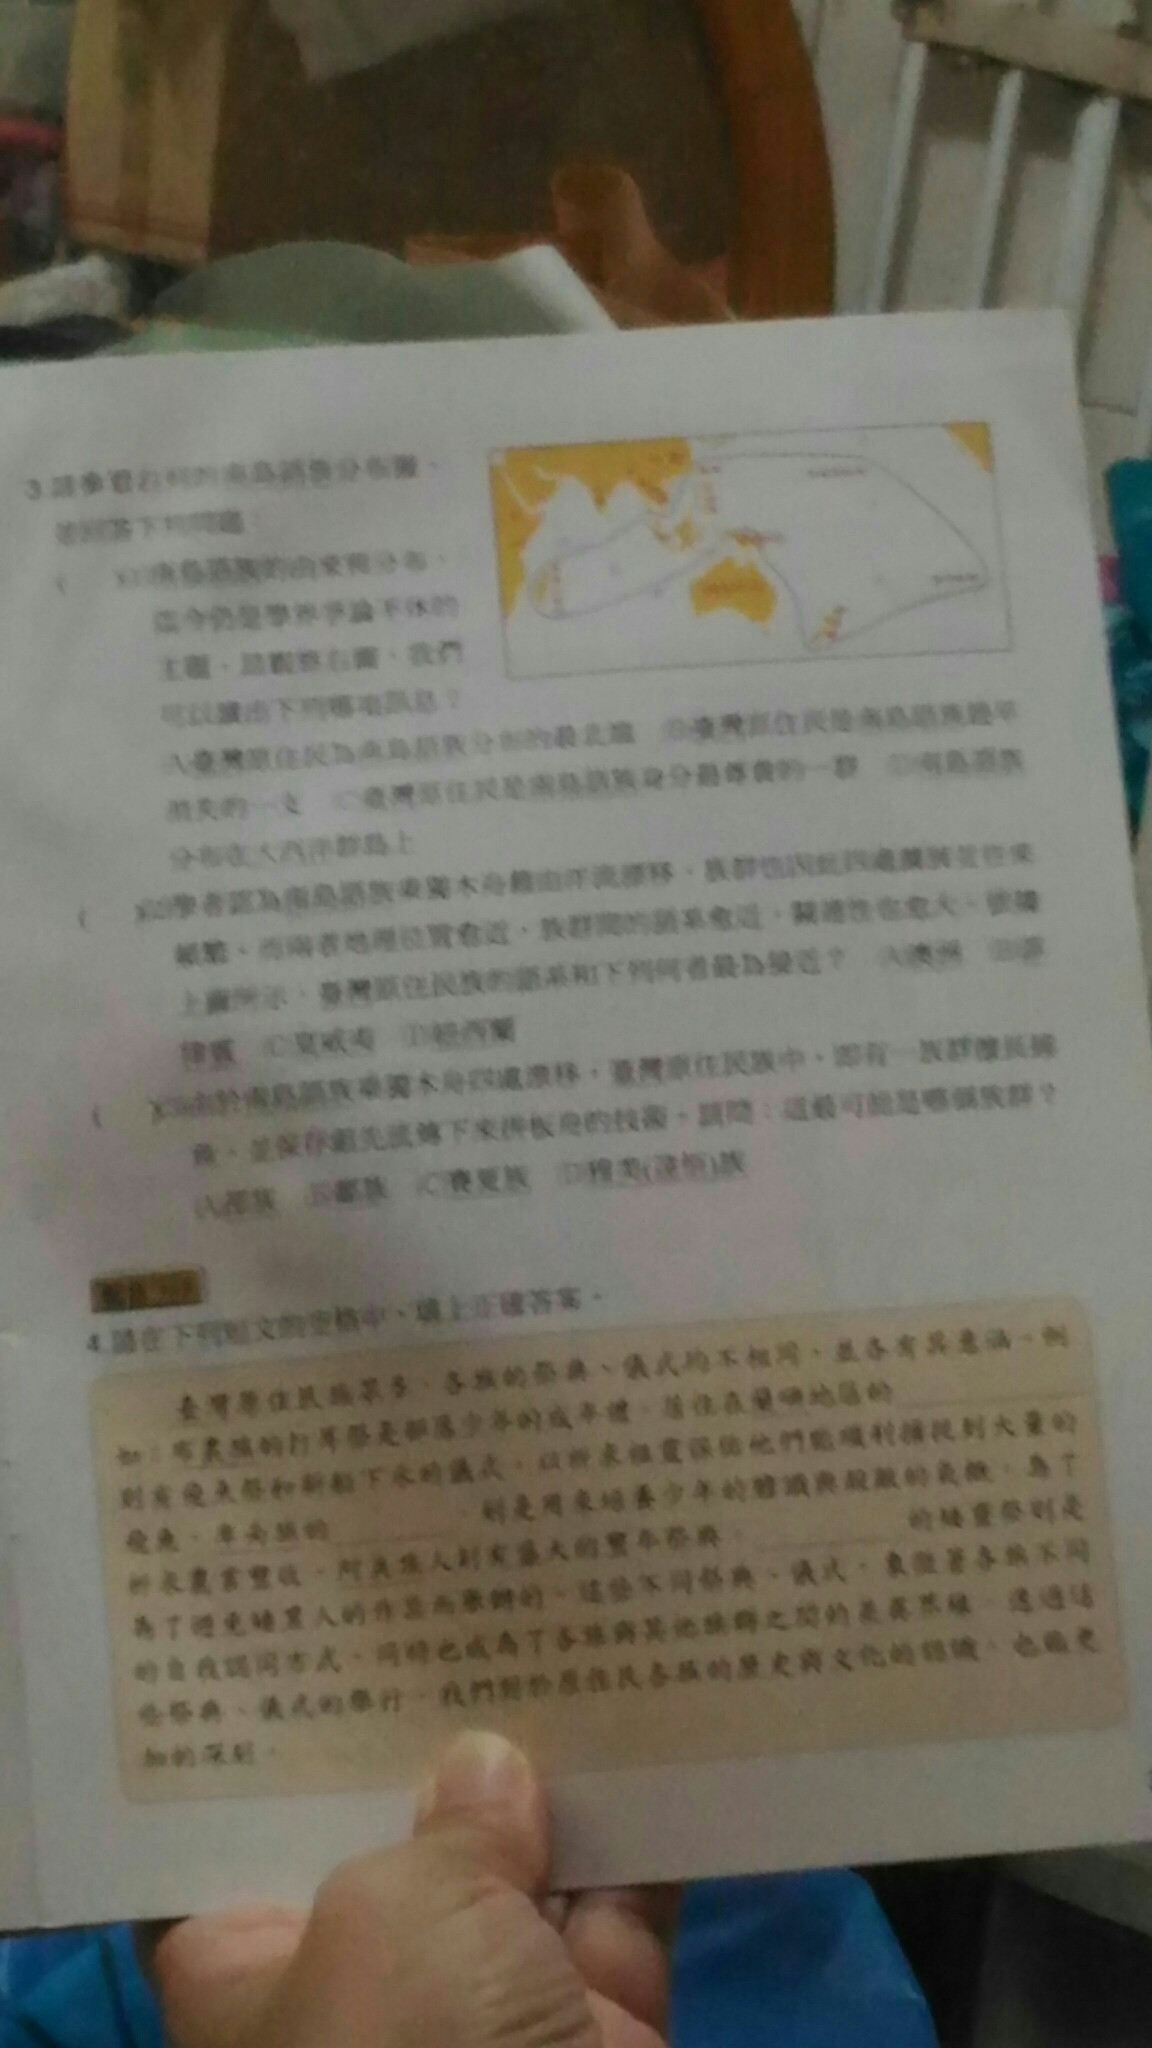 3.請參看右列的南島語族分布圖，
並回答下列問題：
( )(1)南島語族的由來與分布，
迄今仍是學界爭論不休的
主題。請觀察右圖，我們
可以讀出下列哪項訊息？
(A)臺灣原住民為南島語族分布的最北端 (B)臺灣原住民是南島語族
消失的一支 (C)臺灣原住民是南島語族身分最尊貴的一群 (D)南島語族
分布在大西洋群島上
( )(2)學者認為南島語族乘獨木舟藉由洋流漂移，族群也因此四處擴展並往來
頻繁。而兩者地理位置愈近，族群間的語系愈近，關連性也愈大。依據
上圖所示，臺灣原住民族的語系和下列何者最為接近？ (A)澳洲 (B)菲
律賓 (C)夏威夷 (D)紐西蘭
( )(3)由於南島語族乘獨木舟四處漂移，臺灣原住民族中，即有一族群擅長捕
魚，並保存祖先流傳下來拼板舟的技術。請問：這最可能是哪個族群？
(A)邵族 (B)鄒族 (C)賽夏族 (D)雅美(達悟)族
4.請在下列短文的空格中，填上正確答案。
臺灣原住民族眾多，各族的祭典、儀式均不相同，並各有其意涵。例
如：布農族的打耳祭是部落少年的成年禮。居住在蘭嶼地區的
則有飛魚祭和新船下水的儀式，以祈求祖靈保佑他們能順利捕捉到大量的
飛魚。卑南族的 ，則是用來培養少年的膽識與殺敵的氣概。為了
祈求農作豐收，阿美族人則有盛大的豐年祭典。 的矮靈祭則是
為了避免矮黑人的作祟而舉辦的。這些不同祭典、儀式，象徵著各族不同
的自我認同方式，同時也成為了各族與其他族群之間的差異界線。透過這
些祭典、儀式的舉行，我們對於原住民各族的歷史與文化的認識，也能更
加的深刻。